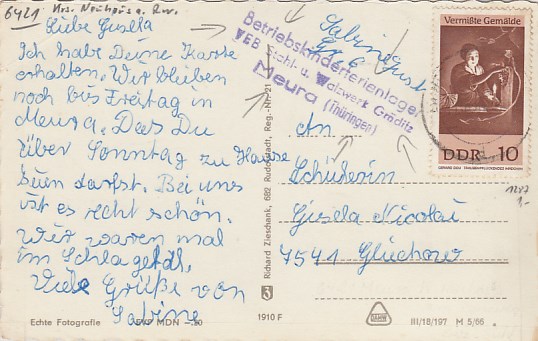 6421 Krs. Neuhaus a. Rwg.
Liebe Gisela
Ich habe Deine Karte
erhalten. Wir bleiben
noch bis Freitag in
Meura. Das Du
über Sonntag zu Hause
sein darfst. Bei uns
ist es recht schön.
Wir waren mal
im Schlagetal.
Viele Grüße von
Sabine
Echte Fotografie
EVP MDN -.20
Sabine
Gr. 6
Betriebskinderferienlager
VEB Stahl- u. Walzwerk Gröditz
Meura (Thüringen)
An
Schülerin
Gisela Nicolai
7541 Glüchow
Vermißte Gemälde
DDR 10
1287
1,-
Richard Zieschank, 682 Rudolstadt, Reg.-Nr. 21
1910 F
DAMW
III/18/197 M 5/66